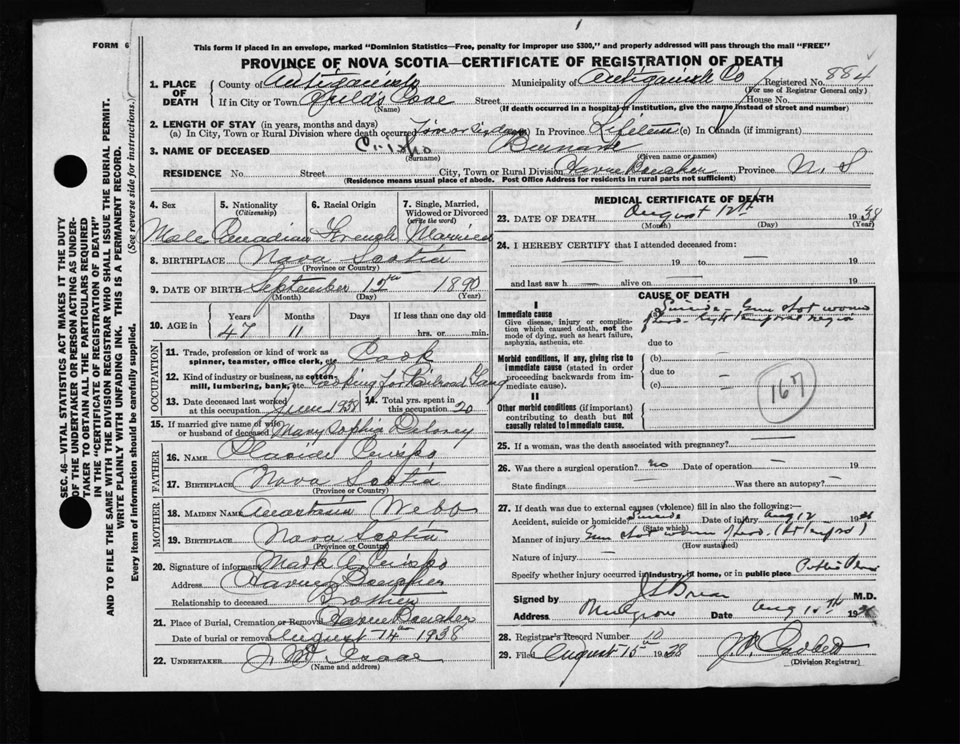 FORM 6
This form if placed in an envelope, marked "Dominion Statistics—Free, penalty for improper use $300," and properly addressed will pass through the mail "FREE"
PROVINCE OF NOVA SCOTIA—CERTIFICATE OF REGISTRATION OF DEATH
1. PLACE OF DEATH County of Antigonish Municipality of Antigonish Co Registered No. 884
(For use of Registrar General only)
If in City or Town Cove Street House No.
(Name) (If death occurred in a hospital or institution, give the name instead of street and number)
2. LENGTH OF STAY (in years, months and days)
(a) In City, Town or Rural Division where death occurred In Province (c) In Canada (if immigrant)
3. NAME OF DECEASED Crispo
(Surname) (Given name or names)
RESIDENCE No. Street City, Town or Rural Division Havre Boucher Province N. S
(Residence means usual place of abode. Post Office Address for residents in rural parts not sufficient)
4. Sex 5. Nationality (Citizenship) 6. Racial Origin 7. Single, Married, Widowed or Divorced (write the word)
Male Canadian French Married
8. BIRTHPLACE Nova Scotia
(Province or Country)
9. DATE OF BIRTH September 1890
(Month) (Day) (Year)
10. AGE in Years Months Days If less than one day old
47 11 hrs. or min.
OCCUPATION
11. Trade, profession or kind of work as spinner, teamster, office clerk, etc. Cook
12. Kind of industry or business, as cotton-mill, lumbering, bank, etc. Cooking for Railroad Gang
13. Date deceased last worked at this occupation June 1938 14. Total yrs. spent in this occupation 20
15. If married give name of wife or husband of deceased Mary Sophia
FATHER
16. NAME Placide Crispo
17. BIRTHPLACE Nova Scotia
(Province or Country)
MOTHER
18. MAIDEN NAME Webb
19. BIRTHPLACE Nova Scotia
(Province or Country)
20. Signature of informant Mark Crispo
Address Havre Boucher
Relationship to deceased Brother
21. Place of Burial, Cremation or Removal Havre Boucher
Date of burial or removal August 14th 1938
22. UNDERTAKER
(Name and address)
MEDICAL CERTIFICATE OF DEATH
23. DATE OF DEATH August 12th 1938
(Month) (Day) (Year)
24. I HEREBY CERTIFY that I attended deceased from:
19 to 19
and last saw h alive on 19
CAUSE OF DEATH
I
Immediate cause
Give disease, injury or complication which caused death, not the mode of dying, such as heart failure, asphyxia, asthenia, etc.
Suicide - Gun shot wound
due to
Morbid conditions, if any, giving rise to immediate cause (stated in order proceeding backwards from immediate cause).
(b)
due to
(c)
167
II
Other morbid conditions (if important) contributing to death but not causally related to immediate cause.
25. If a woman, was the death associated with pregnancy?
26. Was there a surgical operation? no Date of operation 19
State findings Was there an autopsy?
27. If death was due to external causes (violence) fill in also the following:—
Accident, suicide or homicide? Suicide Date of injury Aug 12 19
(State which)
Manner of injury Gun shot wound
(How sustained)
Nature of injury
Specify whether injury occurred in industry, in home, or in public place Public
Signed by M.D.
Address Mulgrave Date Aug 19
28. Registrar's Record Number 10
29. Filed August 15 1938
(Division Registrar)
SEC. 46—VITAL STATISTICS ACT MAKES IT THE DUTY OF THE UNDERTAKER OR PERSON ACTING AS UNDERTAKER TO OBTAIN ALL THE PARTICULARS REQUIRED IN THE "CERTIFICATE OF REGISTRATION OF DEATH" AND TO FILE THE SAME WITH THE DIVISION REGISTRAR WHO SHALL ISSUE THE BURIAL PERMIT.
WRITE PLAINLY WITH UNFADING INK. THIS IS A PERMANENT RECORD.
Every item of information should be carefully supplied. (See reverse side for instructions.)